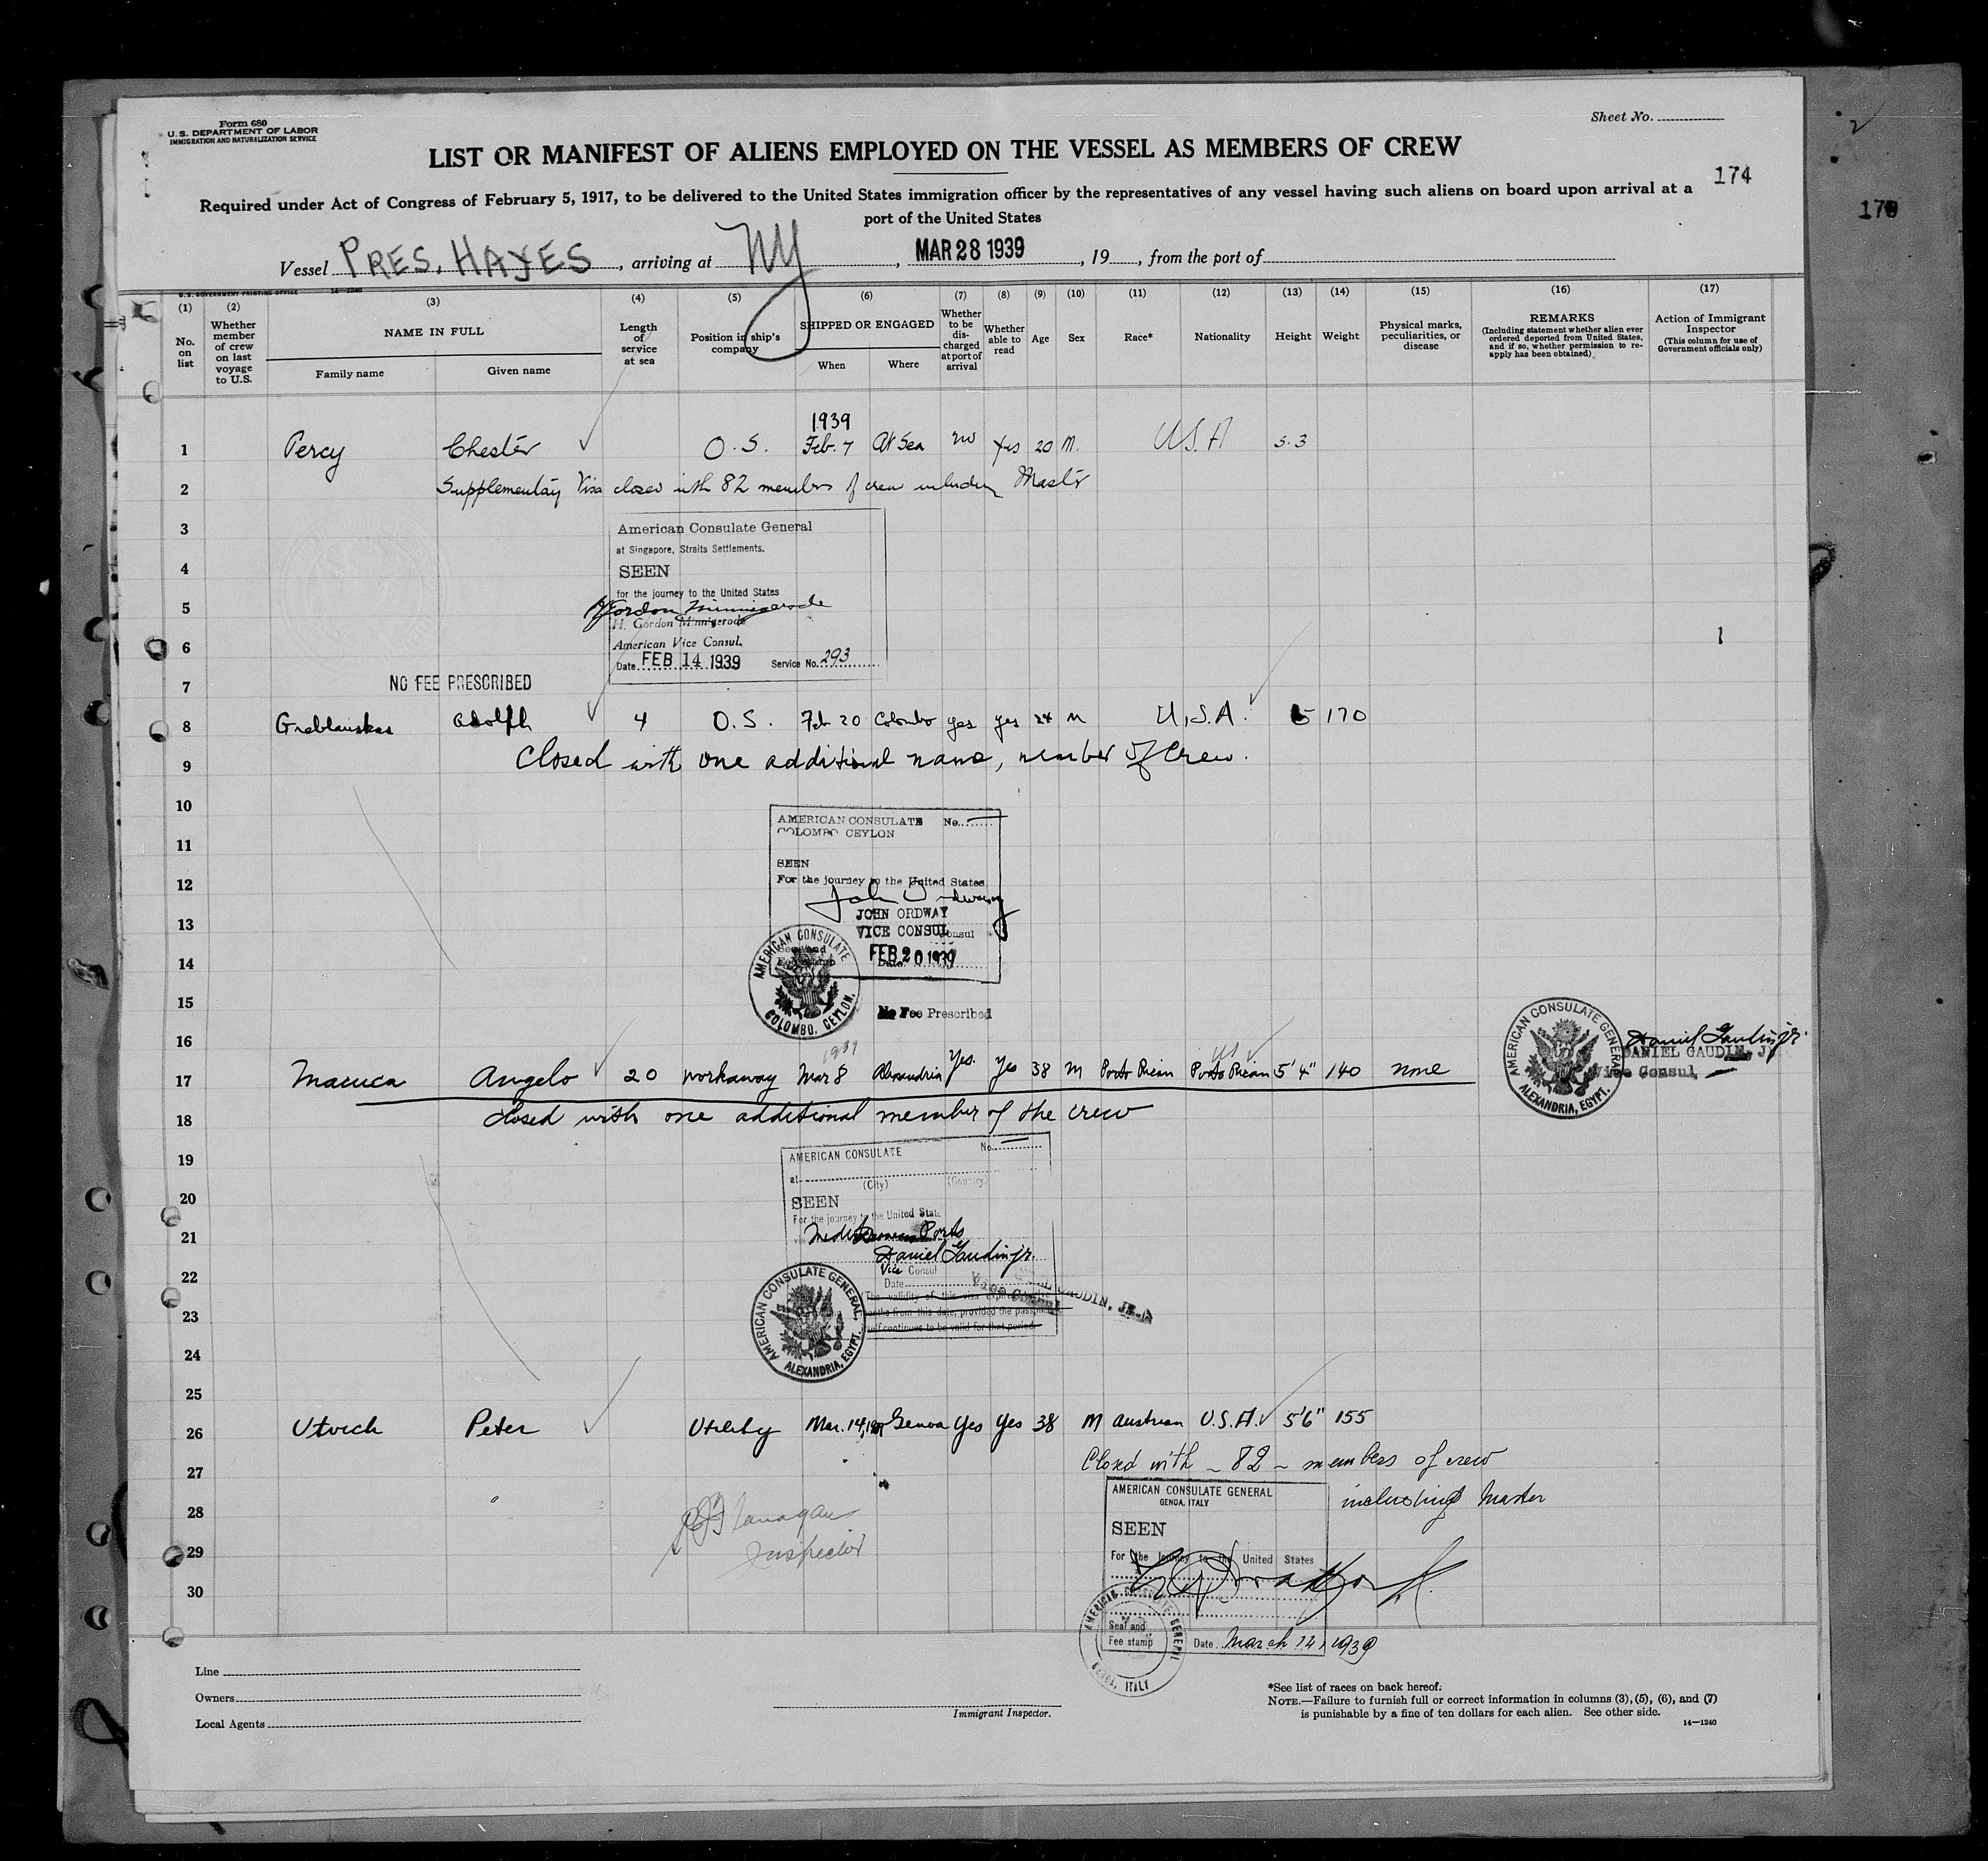 Form 680
U. S. DEPARTMENT OF LABOR
IMMIGRATION AND NATURALIZATION SERVICE
Sheet No.
LIST OR MANIFEST OF ALIENS EMPLOYED ON THE VESSEL AS MEMBERS OF CREW
174
170
Required under Act of Congress of February 5, 1917, to be delivered to the United States immigration officer by the representatives of any vessel having such aliens on board upon arrival at a
port of the United States
Vessel PRES. HAYES, arriving at NY, MAR 28 1939, 19, from the port of
U. S. GOVERNMENT PRINTING OFFICE 14—1240
(1) No. on list
(2) Whether member of crew on last voyage to U.S.
(3) NAME IN FULL Family name Given name
(4) Length of service at sea
(5) Position in ship's company
(6) SHIPPED OR ENGAGED When Where
(7) Whether to be discharged at port of arrival
(8) Whether able to read
(9) Age
(10) Sex
(11) Race*
(12) Nationality
(13) Height
(14) Weight
(15) Physical marks, peculiarities, or disease
(16) REMARKS (Including statement whether alien ever ordered deported from United States, and if so, whether permission to reapply has been obtained)
(17) Action of Immigrant Inspector (This column for use of Government officials only)
1939
1 Percy Chester O.S. Feb. 7 At Sea no yes 20 M. U.S.A 5.3
2 Supplementary Visa closed with 82 members of crew including Master
3 American Consulate General
at Singapore, Straits Settlements.
4 SEEN
for the journey to the United States
5
H. Gordon Minnigerode
6 American Vice Consul. 1
Date FEB 14 1939 Service No. 293
7 NO FEE PRESCRIBED
8 Greblauskas Adolph 4 O.S. Feb 20 Colombo yes yes 24 M U.S.A. 5 170
9 Closed with one additional name, member of Crew.
10
AMERICAN CONSULATE No.
COLOMBO CEYLON
11
SEEN
12 For the journey to the United States
John Ordway
13 JOHN ORDWAY
VICE CONSUL
14 FEB 20 1939
AMERICAN CONSULATE COLOMBO, CEYLON.
15 No Fee Prescribed
16 1939 US
17 Macuca Angelo 20 workaway Mar 8 Alexandria Yes. Yes 38 M Porto Rican Porto Rican 5'4" 140 none
AMERICAN CONSULATE GENERAL ALEXANDRIA, EGYPT.
Daniel Gaudin jr.
DANIEL GAUDIN, JR
Vice Consul
18 closed with one additional member of the crew
19 AMERICAN CONSULATE No.
at
(City) (Country)
20 SEEN
For the journey to the United States
21 Mediterranean Ports
Daniel Gaudin jr.
22 Vice Consul
Date
GAUDIN, JR.
The validity of this visa expires
23 months from this date, provided the passport
itself continues to be valid for that period.
AMERICAN CONSULATE GENERAL ALEXANDRIA, EGYPT.
24
25
26 Utvich Peter Utility Mar. 14, 1939 Genoa Yes Yes 38 M Austrian U.S.A. 5'6" 155
Closed with - 82 - members of crew
27
AMERICAN CONSULATE GENERAL
GENOA, ITALY
including Master
28
SEEN
Flanagan
Inspector
29 For the journey to the United States
30
AMERICAN CONSULATE GENERAL GENOA, ITALY
Seal and
Fee stamp
Date March 14, 1939
Line
Owners
Local Agents
Immigrant Inspector.
*See list of races on back hereof.
NOTE.—Failure to furnish full or correct information in columns (3), (5), (6), and (7)
is punishable by a fine of ten dollars for each alien. See other side.
14—1240